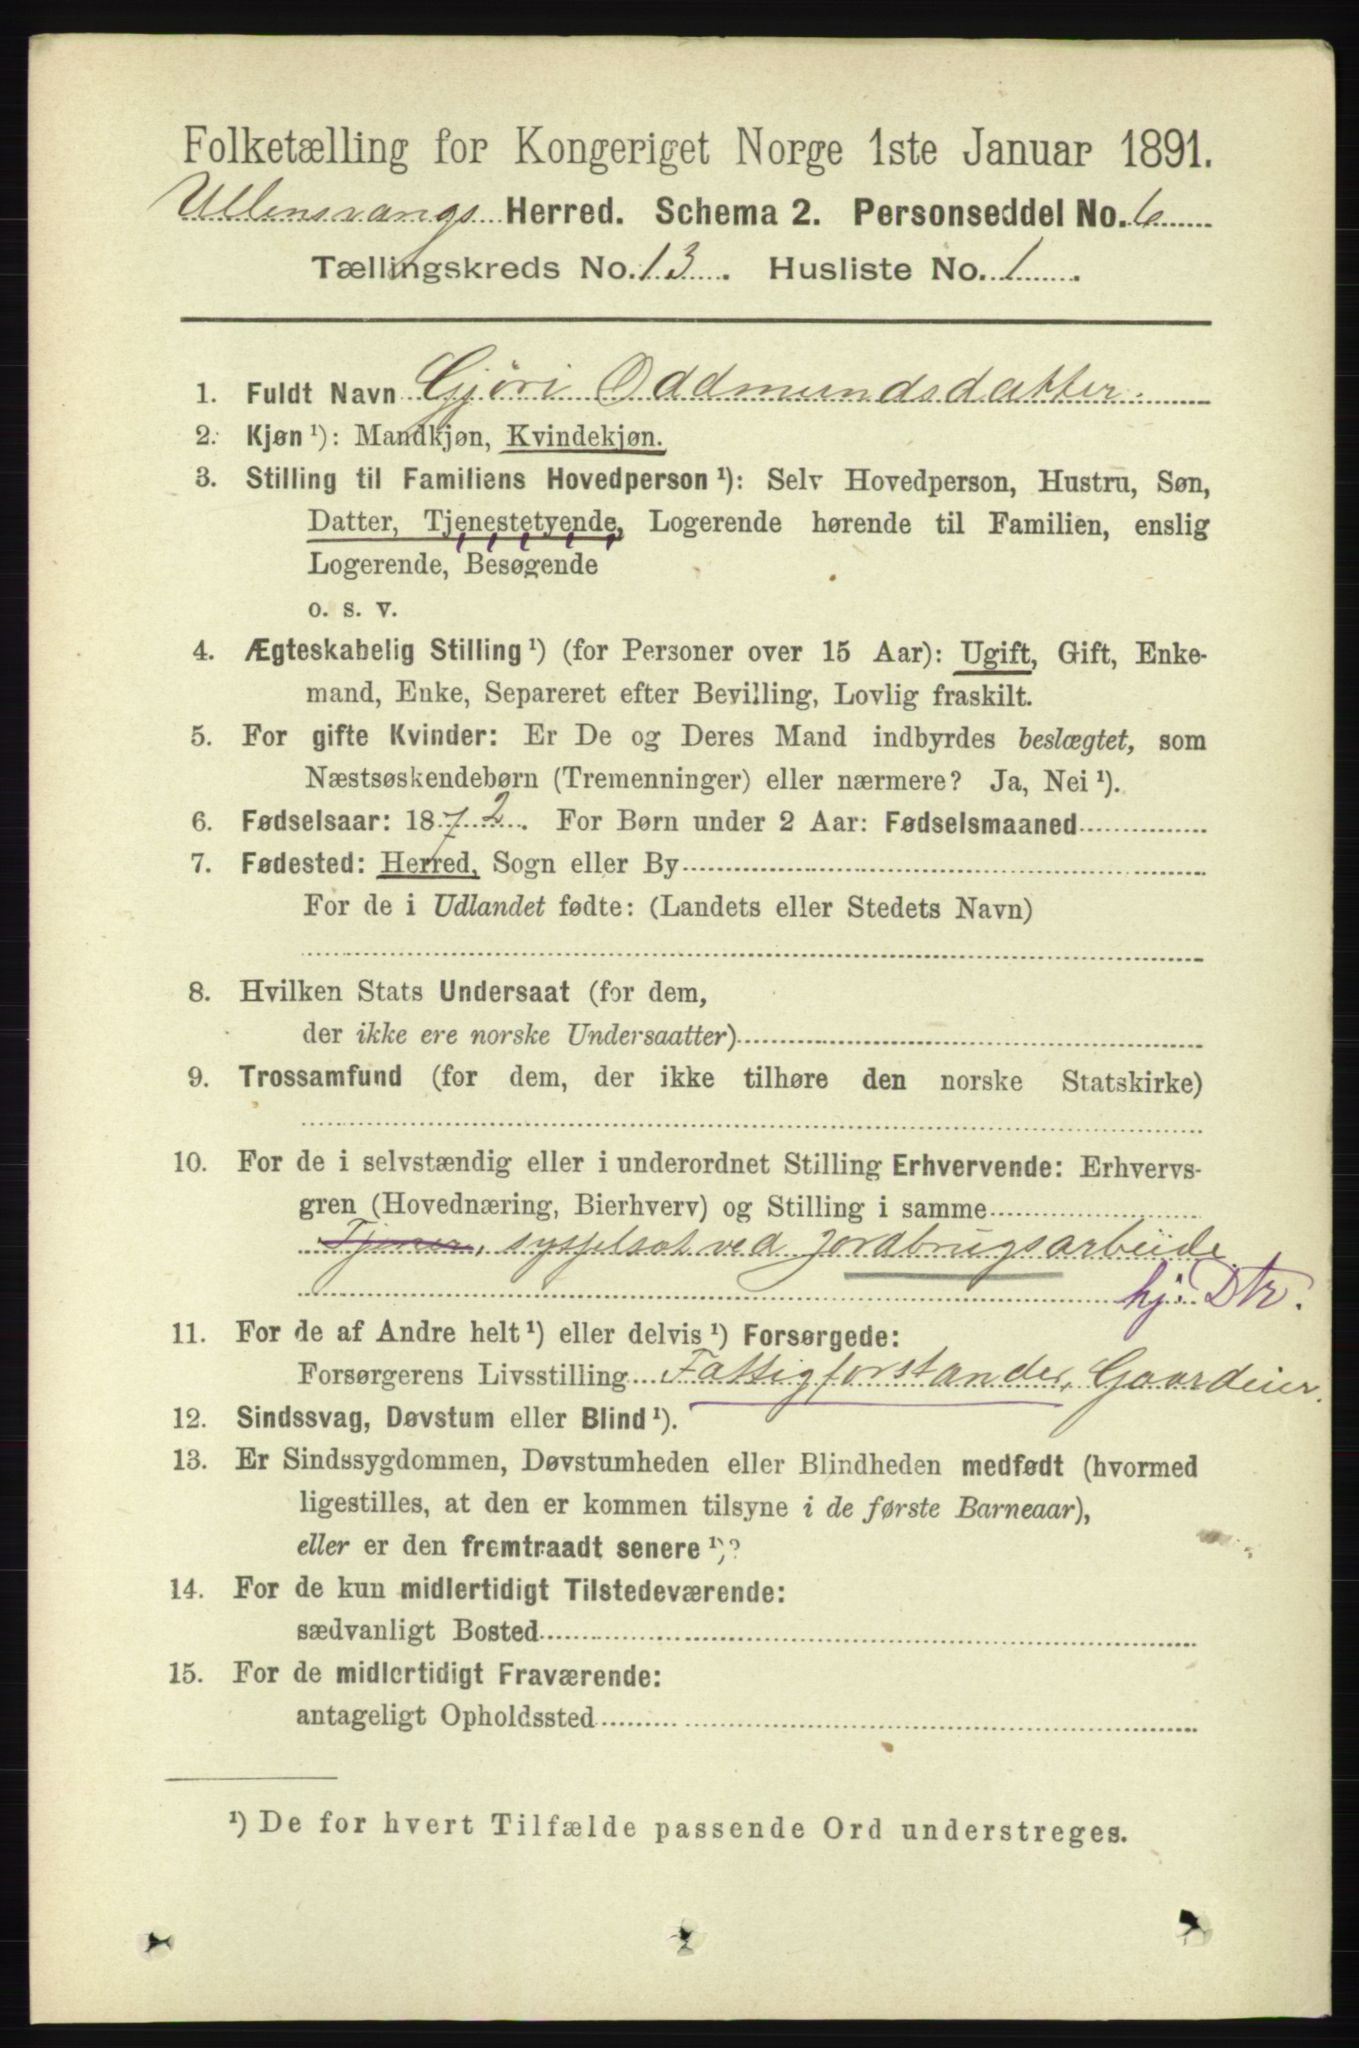 Folketælling for Kongeriget Norge 1ste Januar 1891.
Ullensvangs Herred. Schema 2. Personseddel No. 6
Tællingskreds No. 13. Husliste No. 1.
1. Fuldt Navn Gjöri Oddmundsdatter.
2. Kjøn ¹): Mandkjøn, Kvindekjøn.
3. Stilling til Familiens Hovedperson ¹): Selv Hovedperson, Hustru, Søn,
Datter, Tjenestetyende, Logerende hørende til Familien, enslig
Logerende, Besøgende
o. s. v.
4. Ægteskabelig Stilling ¹) (for Personer over 15 Aar): Ugift, Gift, Enke-
mand, Enke, Separeret efter Bevilling, Lovlig fraskilt.
5. For gifte Kvinder: Er De og Deres Mand indbyrdes beslægtet, som
Næstsøskendebørn (Tremenninger) eller nærmere? Ja, Nei ¹).
6. Fødselsaar: 1872. For Børn under 2 Aar: Fødselsmaaned
7. Fødested: Herred, Sogn eller By
For de i Udlandet fødte: (Landets eller Stedets Navn)
8. Hvilken Stats Undersaat (for dem,
der ikke ere norske Undersaatter)
9. Trossamfund (for dem, der ikke tilhøre den norske Statskirke)
10. For de i selvstændig eller i underordnet Stilling Erhvervende: Erhvervs-
gren (Hovednæring, Bierhverv) og Stilling i samme
Tjener, sysselsat ved Jordbrugsarbeide
hj: Dtr.
11. For de af Andre helt ¹) eller delvis ¹) Forsørgede:
Forsørgerens Livsstilling Fattigforstander, Gaardeier.
12. Sindssvag, Døvstum eller Blind ¹).
13. Er Sindssygdommen, Døvstumheden eller Blindheden medfødt (hvormed
ligestilles, at den er kommen tilsyne i de første Barneaar),
eller er den fremtraadt senere ¹)?
14. For de kun midlertidigt Tilstedeværende:
sædvanligt Bosted
15. For de midlertidigt Fraværende:
antageligt Opholdssted
¹) De for hvert Tilfælde passende Ord understreges.